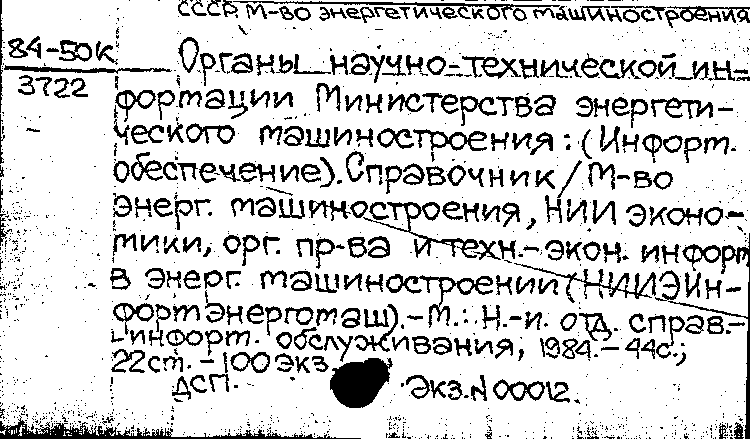 СССР. М-во энергетического машиностроения
84-50к
3722
Органы научно-технической ин-
формации Министерства энергети-
ческого машиностроения: (Информ.
обеспечение). Справочник / М-во
энерг. машиностроения, НИИ эконо-
мики, орг. пр-ва и техн.-экон. информ
в энерг. машиностроении (НИИЭИн-
формэнергомаш). - М.: Н.-и. отд. справ.-
-информ. обслуживания, 1984. - 44с.;
22см. - 100 экз.
ДСП. Экз. N 00012.